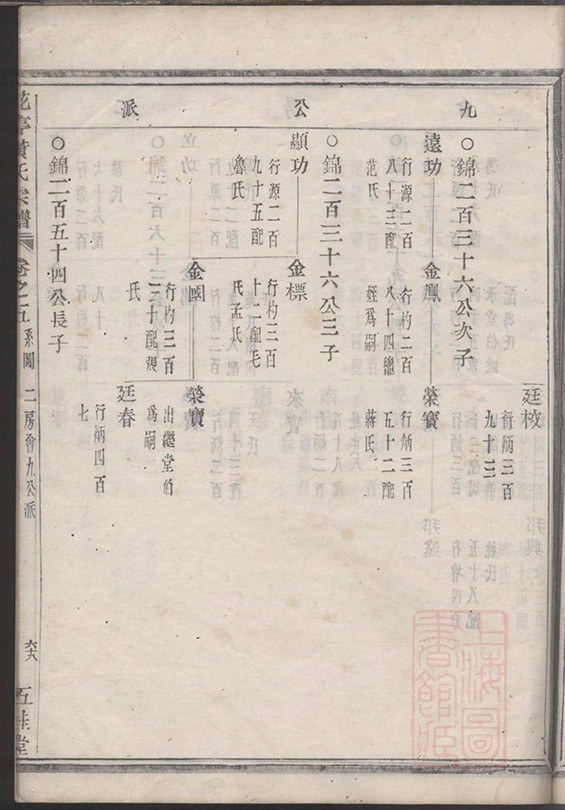 九公派
廷校
行炳三百
九十三
○錦二百三十六公次子
遠功
行源二百
八十三配
范氏
金鳳
行杓二百
八十四繼
姪爲嗣
榮寳
行炳三百
五十二配
蔣氏
○錦二百三十六公三子
顯功
行源二百
九十五配
魯氏
金標
行杓三百
十一配毛
氏孟氏
金國
行杓三百
三十配張
氏
榮寳
出繼堂伯
爲嗣
廷春
行炳四百
七
○錦二百五十四公長子
黃氏宗譜
卷之五
系圖
二房會九公派
六十八
五桂堂
上海圖書館藏